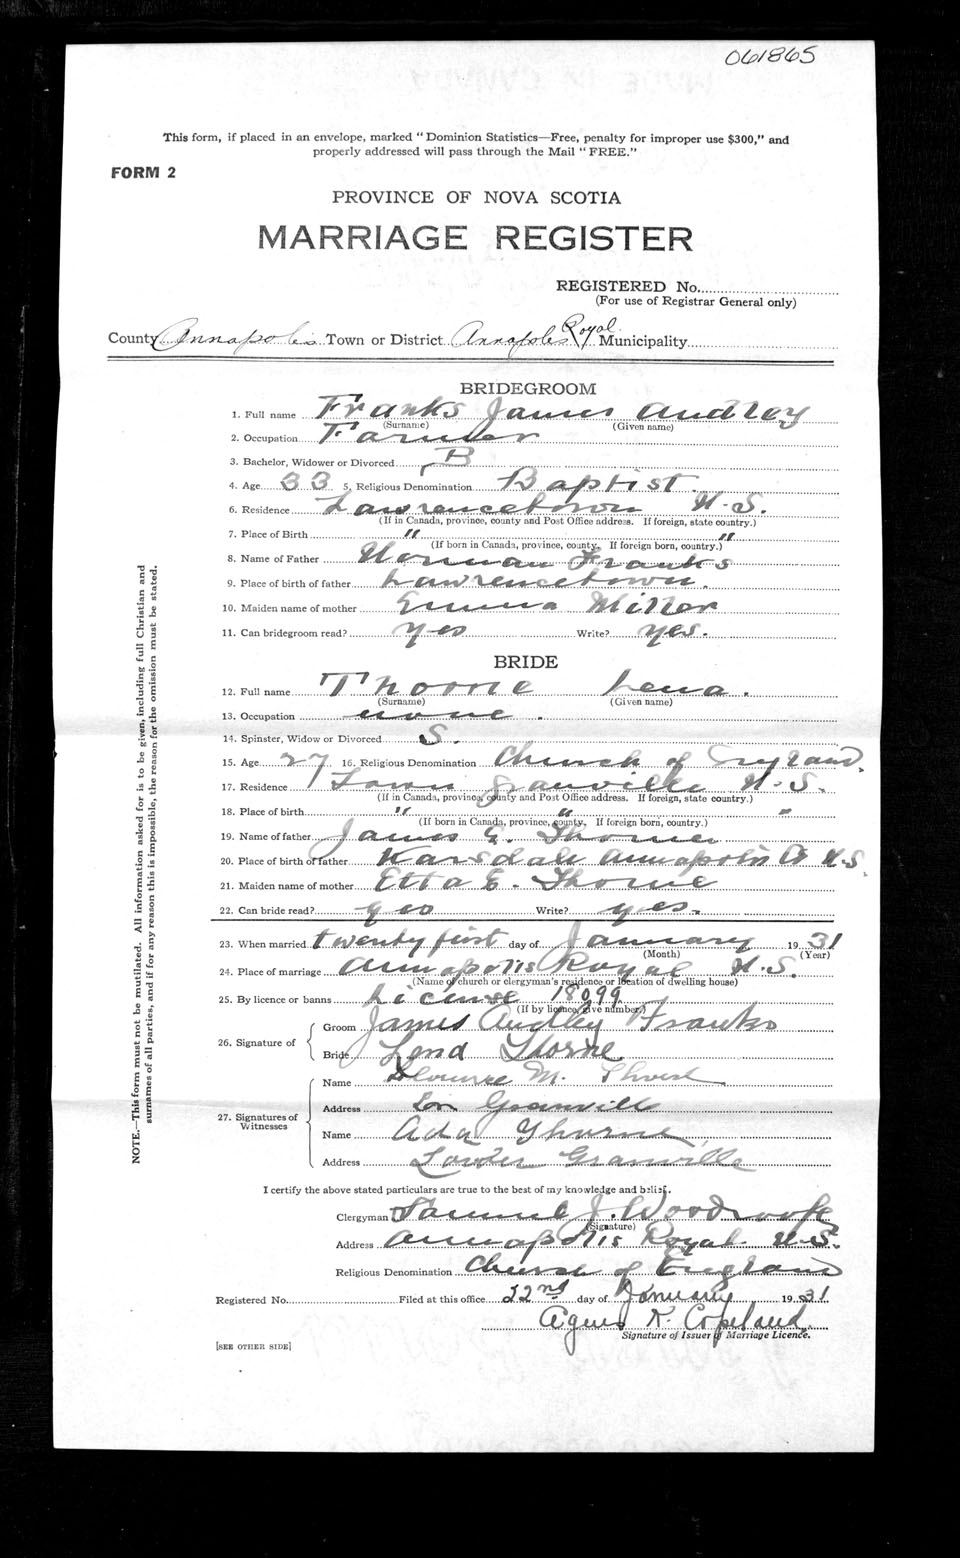 061865
This form, if placed in an envelope, marked "Dominion Statistics—Free, penalty for improper use $300," and
properly addressed will pass through the Mail "FREE."
FORM 2
PROVINCE OF NOVA SCOTIA
MARRIAGE REGISTER
REGISTERED No.
(For use of Registrar General only)
County Annapolis Town or District Annapolis Royal Municipality
BRIDEGROOM
1. Full name Franks James Audley
(Surname) (Given name)
2. Occupation Farmer
3. Bachelor, Widower or Divorced B
4. Age 33 5. Religious Denomination Baptist
6. Residence Lawrencetown N.S.
(If in Canada, province, county and Post Office address. If foreign, state country.)
7. Place of Birth " "
(If born in Canada, province, county. If foreign born, country.)
8. Name of Father Norman Franks
9. Place of birth of father Lawrencetown.
10. Maiden name of mother Emma Miller
11. Can bridegroom read? yes Write? yes.
BRIDE
12. Full name Thorne Lena.
(Surname) (Given name)
13. Occupation none.
14. Spinster, Widow or Divorced S.
15. Age 27 16. Religious Denomination Church of England.
17. Residence Lower Granville N.S.
(If in Canada, province, county and Post Office address. If foreign, state country.)
18. Place of birth " " "
(If born in Canada, province, county. If foreign born, country.)
19. Name of father James E. Thorne
20. Place of birth of father Karsdale Annapolis Co N.S.
21. Maiden name of mother Etta E. Thorne
22. Can bride read? yes Write? yes.
23. When married twenty first day of January 1931
(Month) (Year)
24. Place of marriage Annapolis Royal N.S.
(Name of church or clergyman's residence or location of dwelling house)
25. By licence or banns License 18099
(If by licence, give number.)
26. Signature of
Groom James Audley Franks
Bride Lena Thorne
27. Signatures of Witnesses
Name M.
Address Lr Granville
Name Ada Thorne
Address Lower Granville
I certify the above stated particulars are true to the best of my knowledge and belief.
Clergyman Samuel J. Woodroofe
(Signature)
Address Annapolis Royal N.S.
Religious Denomination Church of England
Registered No. Filed at this office 22nd day of January 1931
Agnes K. Copeland
Signature of Issuer of Marriage Licence.
[SEE OTHER SIDE]
NOTE.—This form must not be mutilated. All information asked for is to be given, including full Christian and
surnames of all parties, and if for any reason this is impossible, the reason for the omission must be stated.